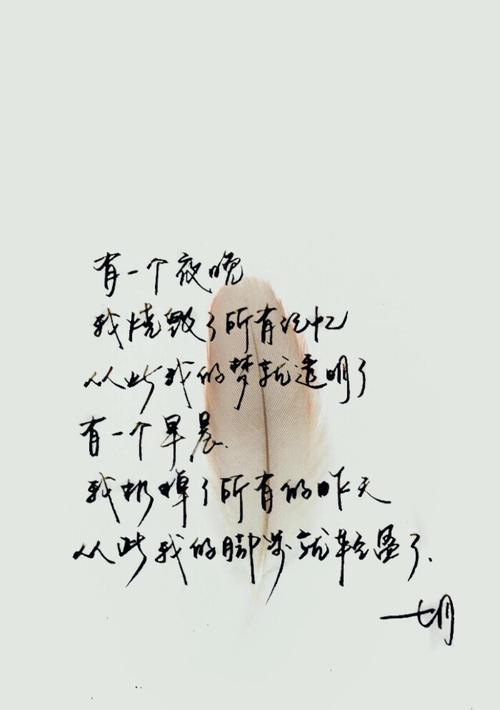 有一个夜晚
我烧毁了所有记忆
从此我的梦就透明了
有一个早晨
我扔掉了所有的昨天
从此我的脚步就轻盈了.
—七月